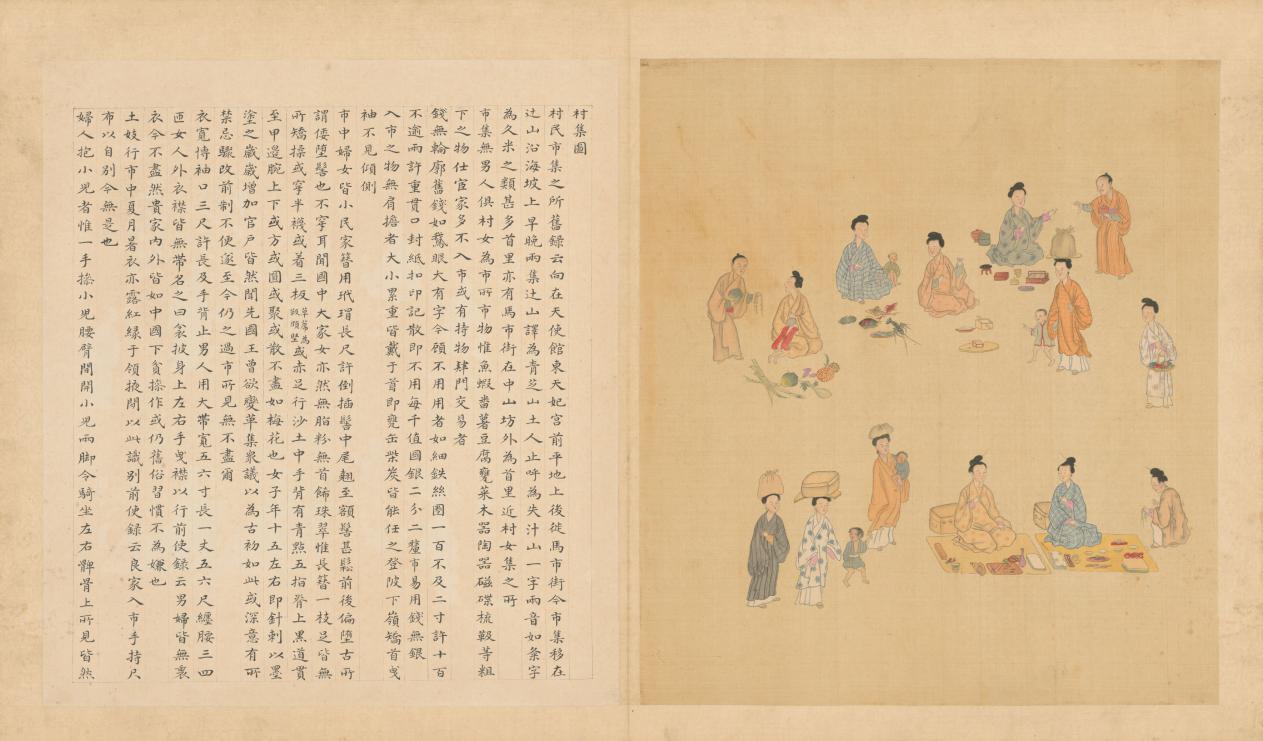 村集圖
村民市集之所舊錄云向在天使館東天妃宮前平地上後徙馬市街今市集移在
辻山沿海坡上早晚兩集辻山譯為青芝山土人止呼為失汁山一字兩音如条字
為久米之類甚多首里亦有馬市街在中山坊外為首里近村女集之所
市集無男人俱村女為市所市物惟魚蝦番薯豆腐甕菜木器陶器磁碟梳靸等粗
下之物仕宦家多不入市或有持物肆門交易者
錢無輪廓舊錢如鵞眼大有字今頗不用用者如細鉄絲圈一百不及二寸許十百
不逾兩許重貫口封紙扣印記散即不用每千值國銀二分二釐市易用錢無銀
入市之物無肩擔者大小累重皆戴于首即甕缶柴炭皆能任之登陂下嶺矯首曳
袖不見傾側
市中婦女皆小民家簪用玳瑁長尺許倒插髻中尾翹至額髻甚鬆前後偏墮古所
謂倭墮髻也不穿耳聞國中大家女亦然無脂粉無首飾珠翠惟長簪一枝足皆無
所矯揉或穿半襪或着三板草屩為皈順墅或赤足行沙土中手背有青點五指脊上黑道貫
至甲邊腕上下或方或圓或聚或散不盡如梅花也女子年十五左右即針刺以墨
塗之歲歲增加官戶皆然聞先國王曾欲變革集衆議以為古初如此或深意有所
禁忌驟改前制不便遂至今仍之過市所見無不盡爾
衣寬博袖口三尺許長及手背止男人用大帶寬五六寸長一丈五六尺纏腰三四
匝女人外衣襟皆無帶名之曰衾披身上左右手曳襟以行前使錄云男婦皆無裏
衣今不盡然貴家內外皆如中國下貧操作或仍舊俗習慣不為嫌也
土妓行市中夏月暑衣亦露紅綠于領掖間以此識別前使錄云良家入市手持尺
布以自別今無是也
婦人抱小兒者惟一手搇小兒腰臂間開小兒兩脚令騎坐左右髀骨上所見皆然